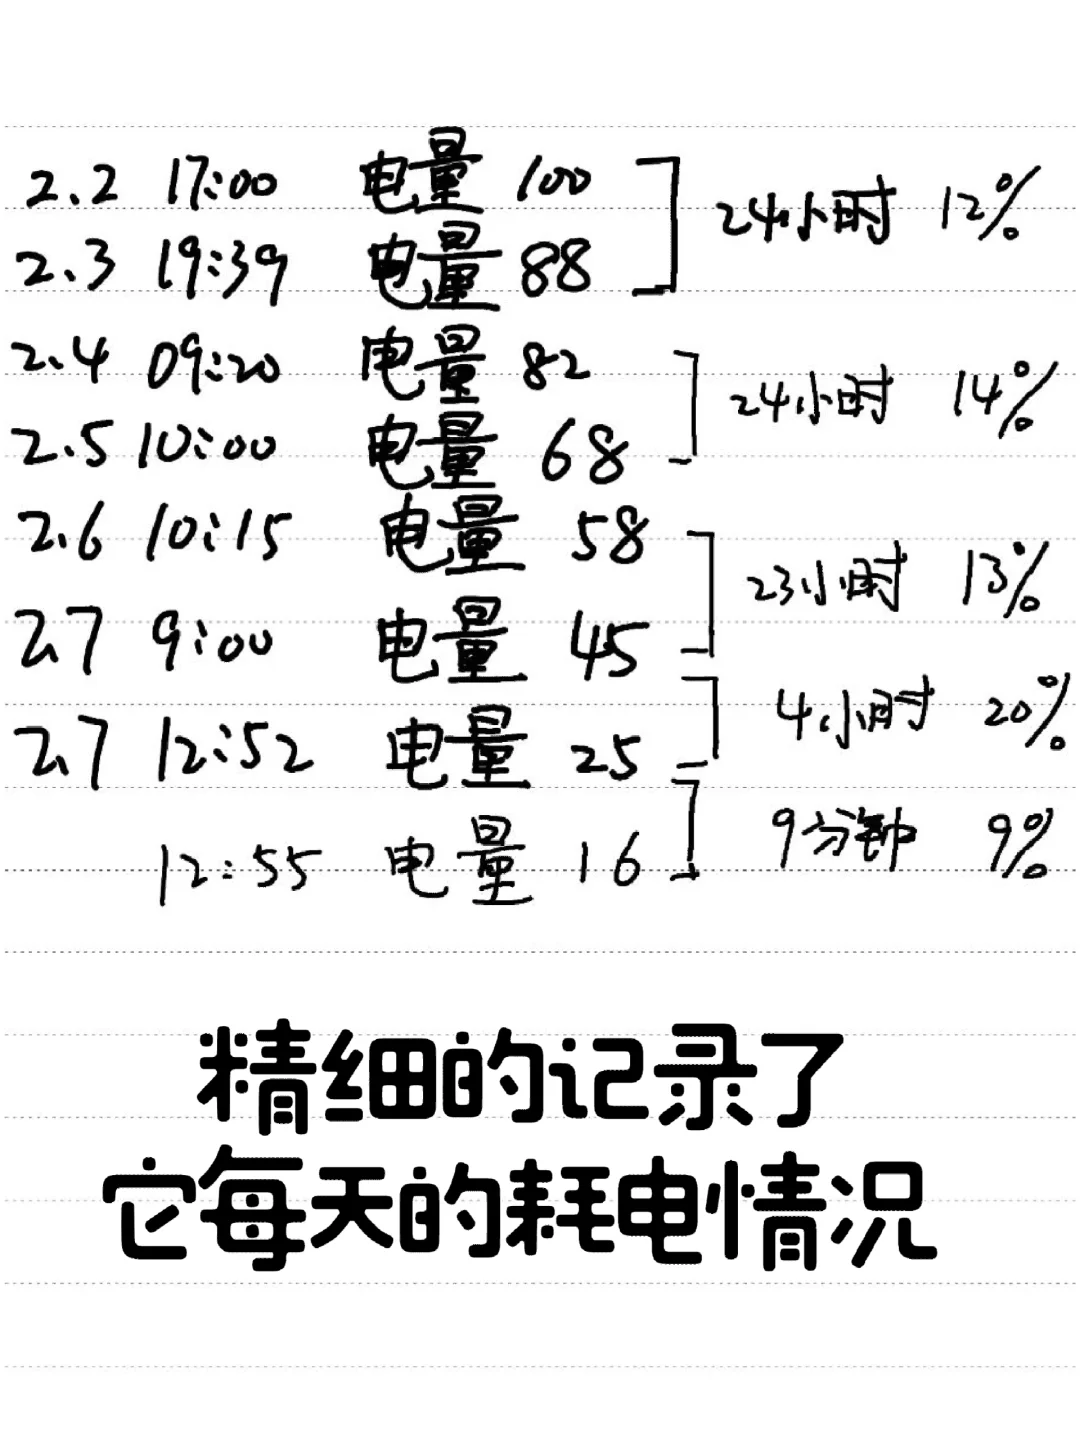 2.2 17:00 电量 100
24小时 12%
2.3 19:39 电量 88
2.4 09:20 电量 82
24小时 14%
2.5 10:00 电量 68
2.6 10:15 电量 58
23小时 13%
2.7 9:00 电量 45
4小时 20%
2.7 12:52 电量 25
9分钟 9%
12:55 电量 16
精细的记录了
它每天的耗电情况